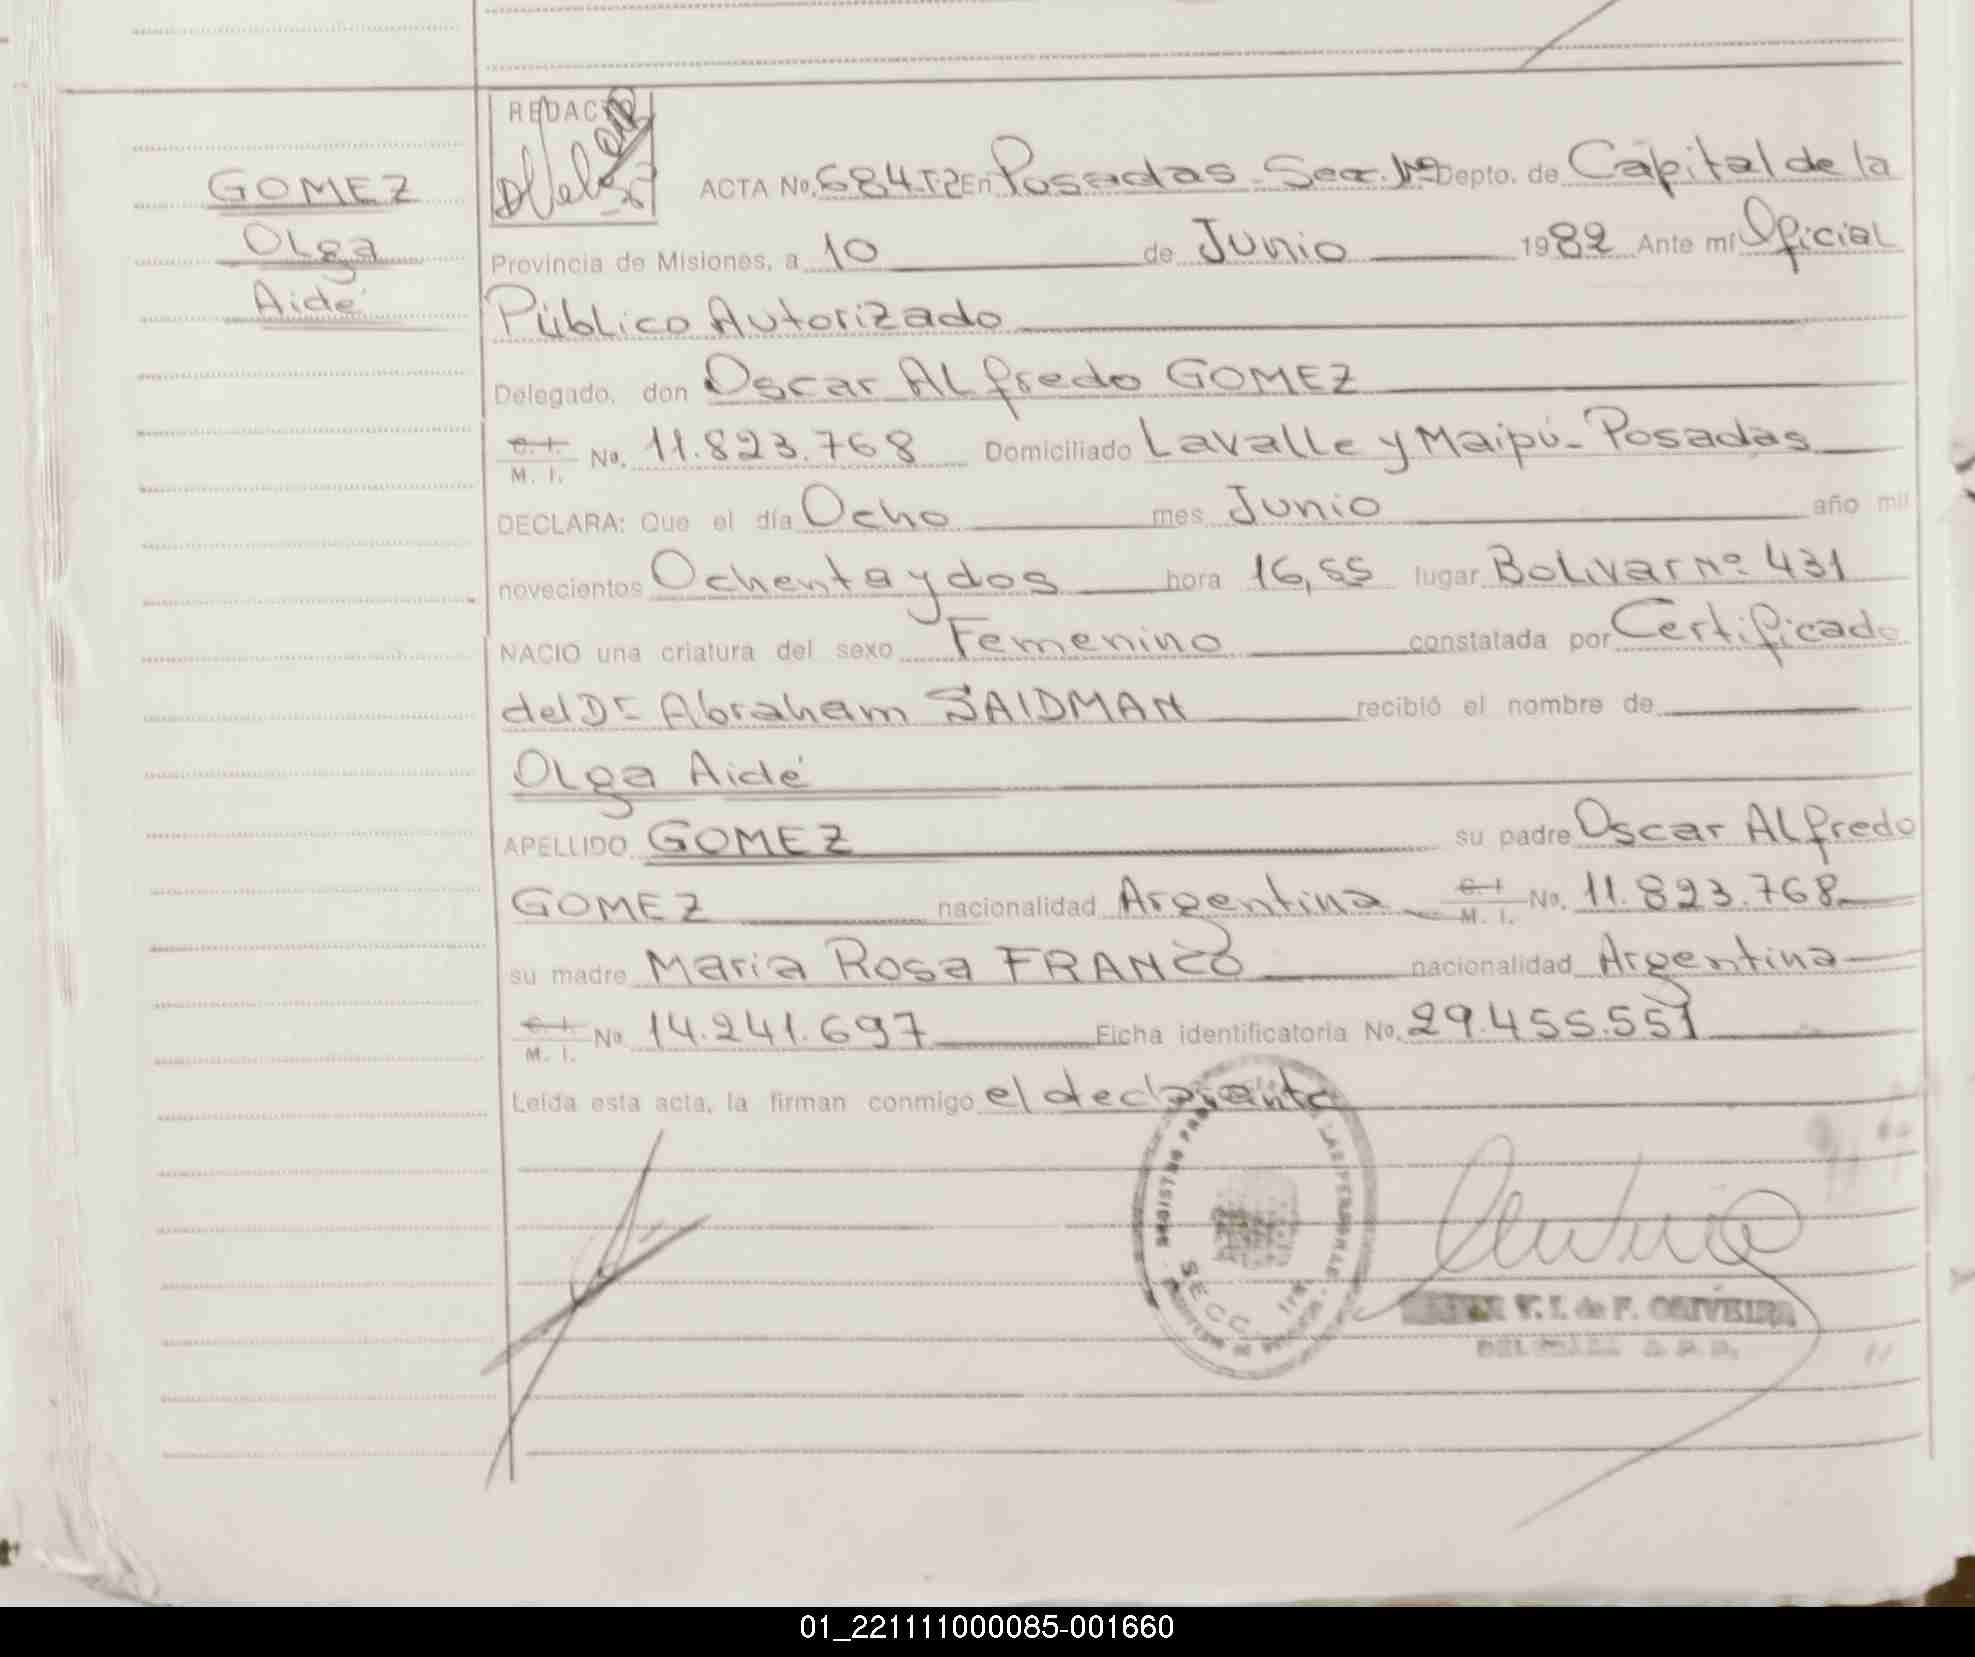 GOMEZ
Olga
Aidé
REDACTO
ACTA No. 684 T2 En Posadas - Secc. 1ra Depto. de Capital de la
Provincia de Misiones, a 10 de Junio 1982 Ante mí Oficial
Público Autorizado
Delegado, don Oscar Alfredo GOMEZ
C. I. M. I. No. 11.823.768 Domiciliado Lavalle y Maipú - Posadas
DECLARA: Que el día Ocho mes Junio año mil
novecientos Ochenta y dos hora 16,55 lugar Bolivar Nº 431
NACIO una criatura del sexo Femenino constatada por Certificado
del Dr Abraham SAIDMAN recibió el nombre de
Olga Aidé
APELLIDO GOMEZ su padre Oscar Alfredo
GOMEZ nacionalidad Argentina C. I. M. I. No. 11.823.768
su madre Maria Rosa FRANCO nacionalidad Argentina
C. I. M. I. No. 14.241.697 Ficha identificatoria No. 29.455.551
Leída esta acta, la firman conmigo el declarante
REGISTRO
SECC. 1ra
V. I. de F. OLIVEIRA
01_221111000085-001660